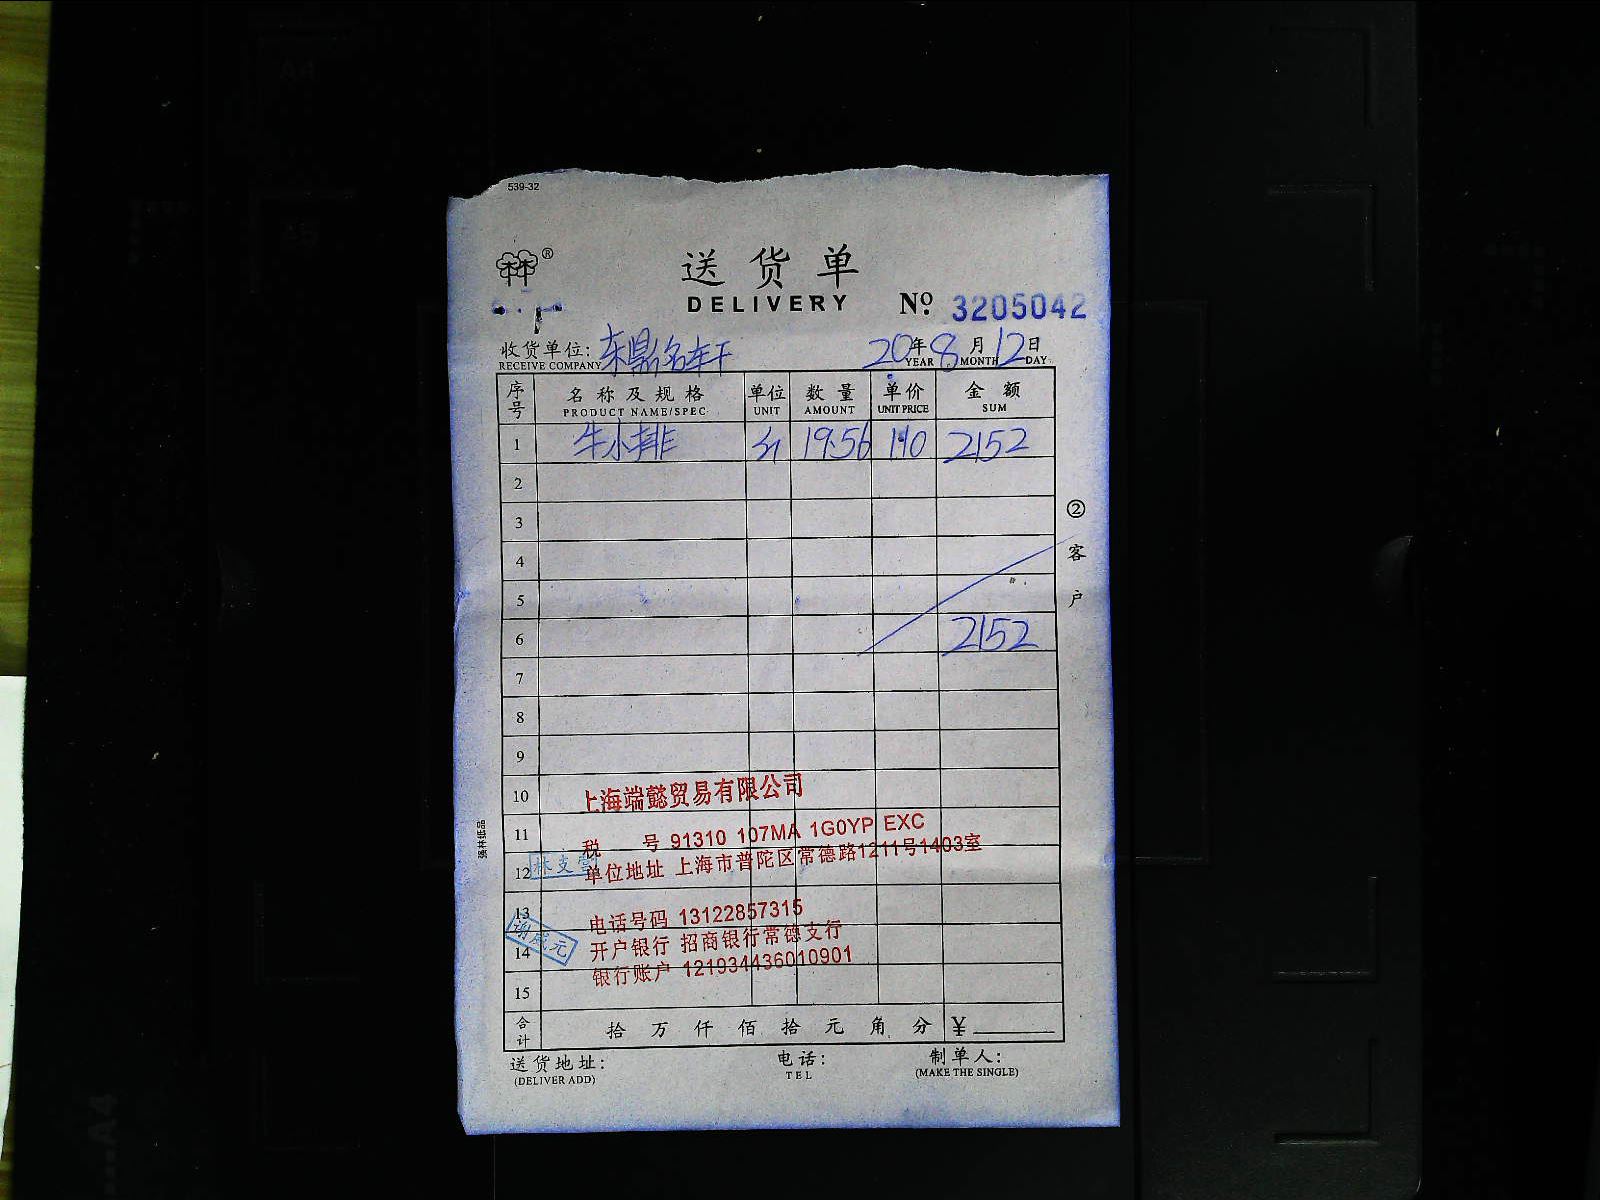 539-32
林®
送货单
DELIVERY
No. 3205042
收货单位: 东鼎名轩 20年8月12日
RECEIVE COMPANY YEAR MONTH DAY
序号 名称及规格 单位 数量 单价 金额
PRODUCT NAME/SPEC UNIT AMOUNT UNIT PRICE SUM
1 牛小排 斤 19.56 110 2152
2
3
4
5
6 2152
7
8
9
10
11
12
13
14
15
②客户
上海端懿贸易有限公司
税 号 91310 107MA 1G0YP EXC
单位地址 上海市普陀区常德路1211号1403室
林支雪
电话号码 13122857315
谢成元
开户银行 招商银行常德支行
银行账户 121934436010901
合计 拾 万 仟 佰 拾 元 角 分 ¥
送货地址: 电话: 制单人:
(DELIVER ADD) TEL (MAKE THE SINGLE)
A4